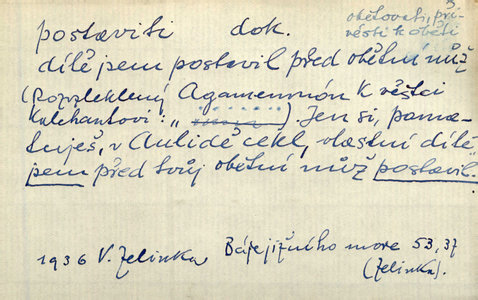 postaviti dok.
3.
obětovati, při-
vésti k oběti
dítě jsem postavil před obětní nůž
(Rozvzteklený Agamemnón k věštci
Kalchantovi: „ ......). Jen si, pama-
tuješ, v Aulidě cekl, vlastní dítě
jsem před tvůj obětní nůž postavil.
1936 V. Zelinka Báje jižního moře 53, 37
(Zelinka).